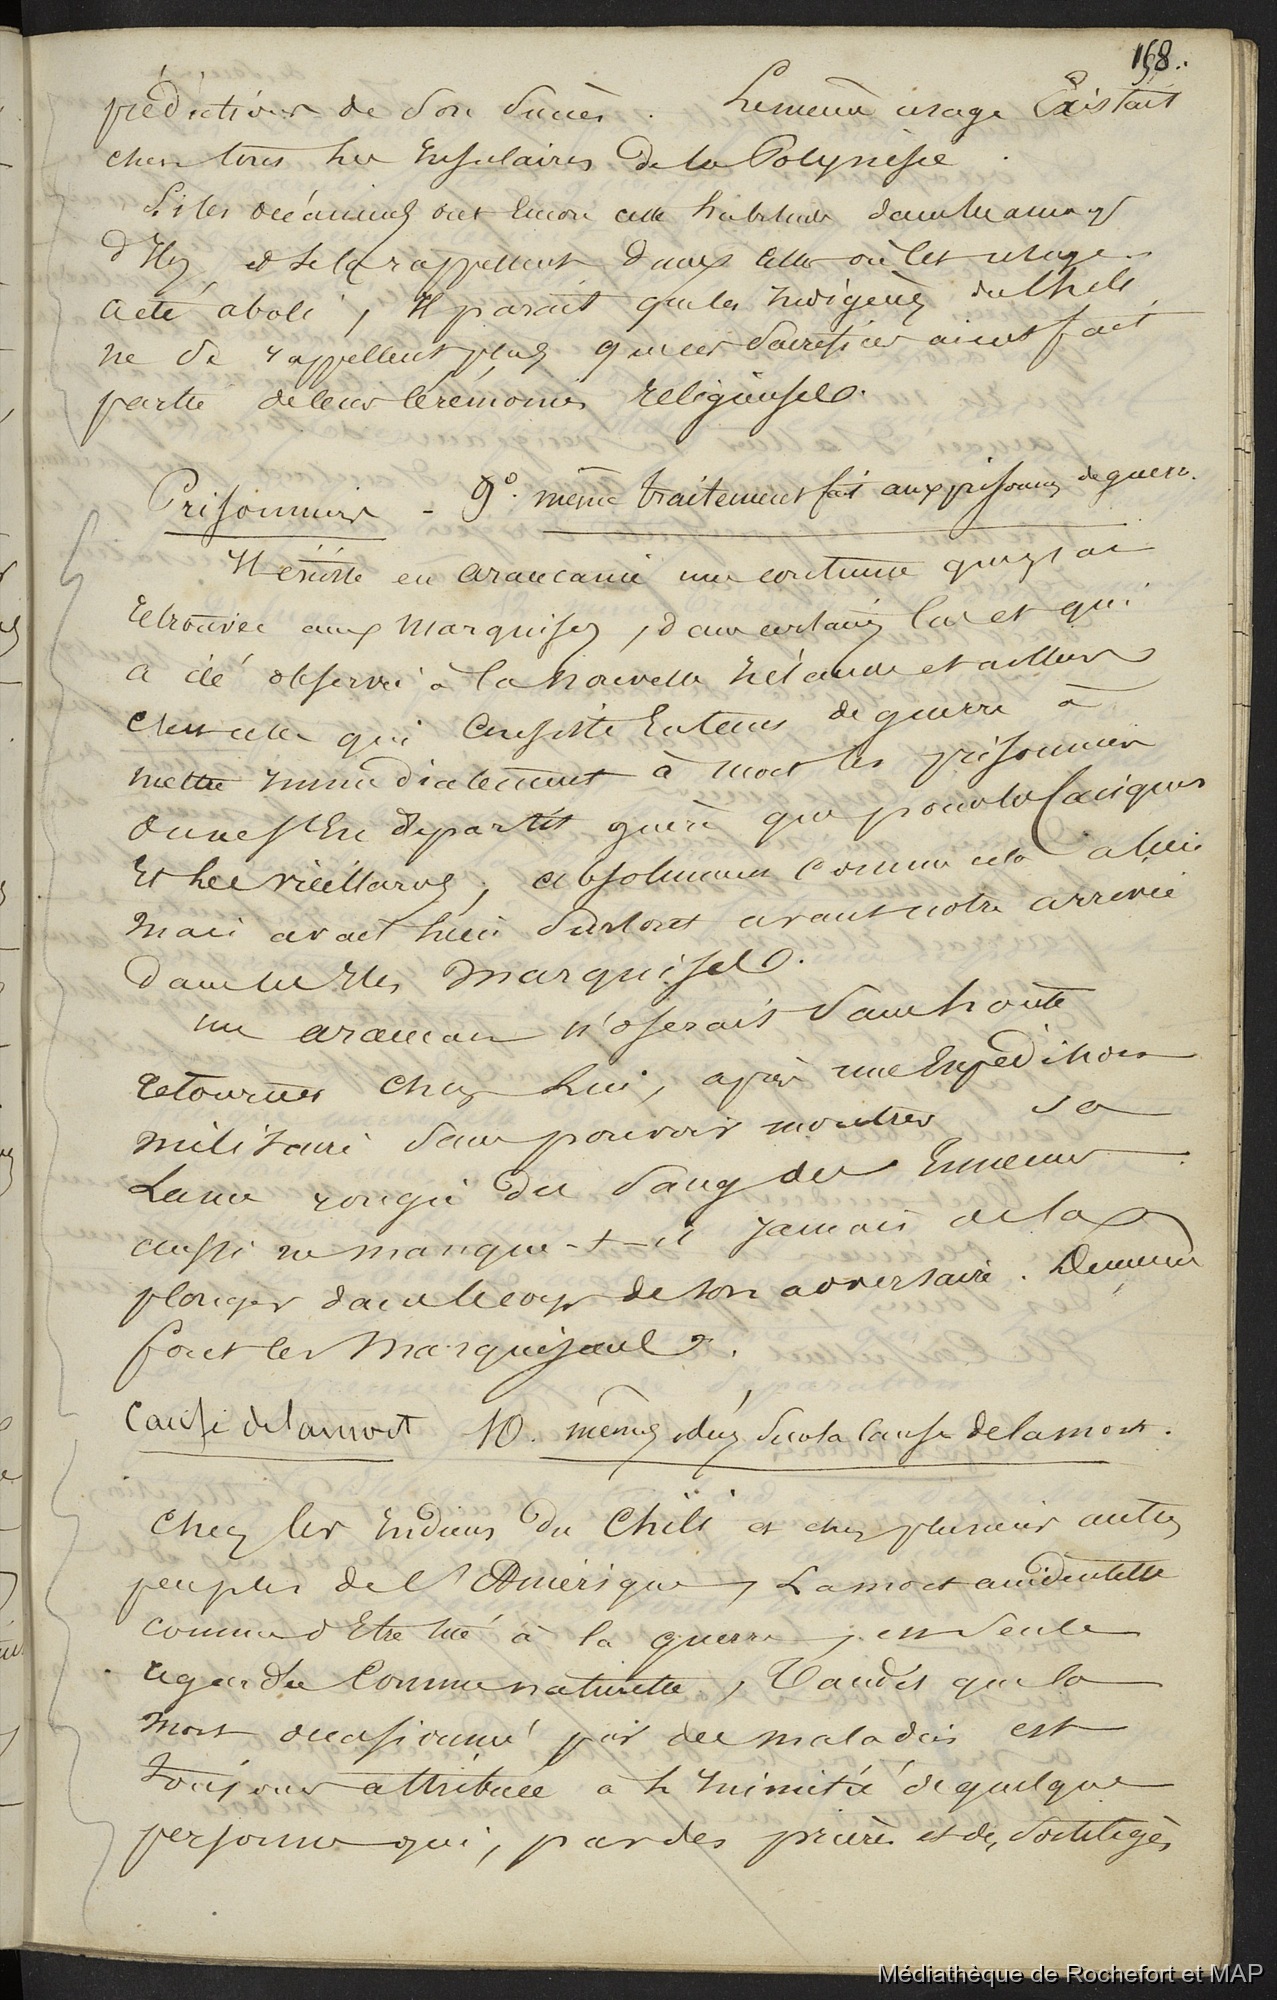 158.
prédictions de son succès. Le même usage Existait
chez tous les Insulaires de la Polynésie.
Si les océaniens ont encore cette habitude dans beaucoup
d'Iles, et se la rappellent dans celles où cet usage
a été aboli, Il parait que les Indigènes du Chili
ne se rappellent plus que ces sacrifices aient fait
partie de leurs Cérémonies Religieuses.
Prisonniers - 9°. même traitement fait aux prisonniers de guerre.
Il existe en araucanie une coutume que j'ai
Retrouvée aux Marquises, dans certains cas et qui
a été observée à la nouvelle Zélande et ailleurs
c'est celle qui Consiste En tems de guerre à
mettre immediatement à mort les prisonniers
on ne s'En départit guère que pour les Caciques
Et les vieillards, absolument comme cela a lieu
mais avait lieu surtout avant notre arrivée
dans les Iles Marquises.
un araucan n'oserait sans honte
Retourner chez Lui, après une Expédition
militaire sans pouvoir montrer sa
Lance rougie du sang des Ennemis
aussi ne manque-t-il Jamais de la
plonger dans le corps de son adversaire. De même
font les Marquisiens.
Cause de la mort 10. mêmes idées sur la cause de la mort.
chez les Indiens du Chili et chez plusieurs autres
peuples de l'Amérique, La mort accidentelle
comme d'Etre tué à la guerre, est seule
regardée Comme naturelle, Tandis que la
mort occasionné par des maladies est
toujours attribuée à l'Inimitié de quelque
personne qui, par des prières et des sortilèges
Médiathèque de Rochefort et MAP